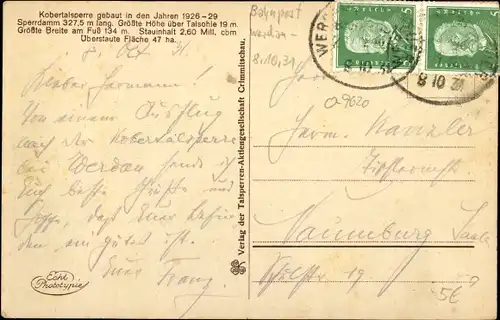 Kobertalsperre gebaut in den Jahren 1926-29
Sperrdamm 327,5 m lang. Größte Höhe über Talsohle 19 m
Größte Breite am Fuß 134 m. Stauinhalt 2,60 Mill. cbm
Überstaute Fläche 47 ha.
8. Oct. 31.
Lieber Hermann!
Von einem Ausflug
nach der Kobertalsperre
bei Werdau sende ich
Euch beste Grüße und
hoffe, daß Euer Befin-
den ein gutes ist.
Euer Franz
Echt
Phototypie
Verlag der Talsperren-Aktiengesellschaft Crimmitschau.
Bahnpost
Werdau -
8.10.31
WER
8 10 31
8 10 31
a9620
Herm. Kanzler
Naumburg Saale
19
5€